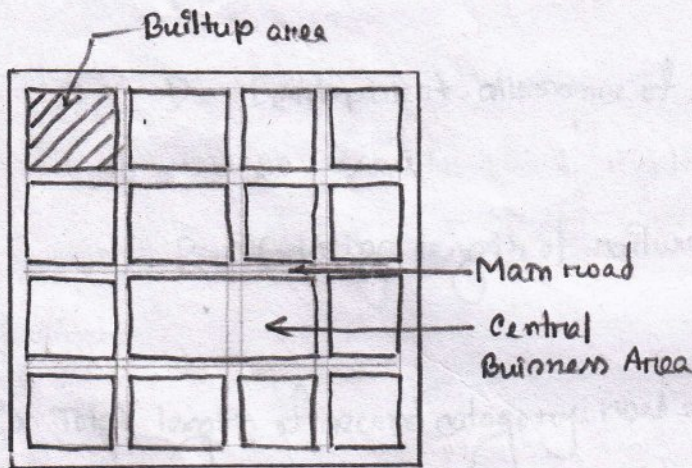 Builtup area
Main road
Central
Buisness Area